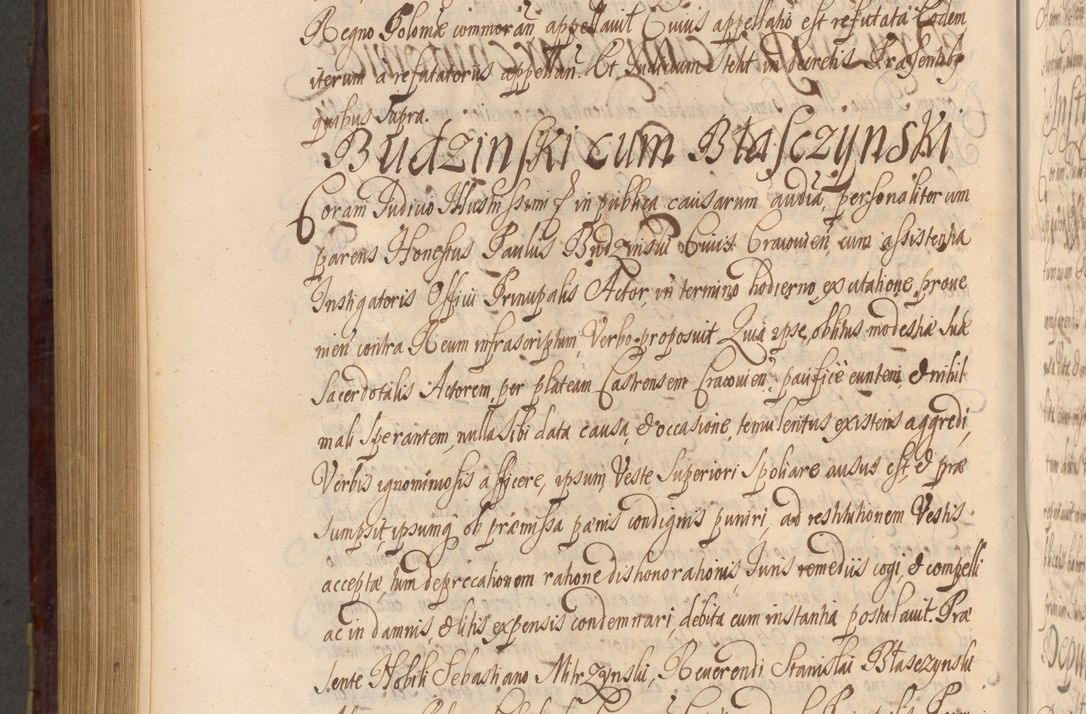 Regno Poloniæ commoran̄ appellavit Cuius appellatio est refutata Eodem
iterum a refutatorÿs appellan̄. Et Iudicium stetit in decretis Præsentibꝫ
quibus supra.
Budzinski cum Błasczynski
Coram Iudicio Illustrissimi & in publica causarum audia, personaliter com
parens Honestus Paulus Budzinski Civis Cracovien, cum assistentia
Instigatoris Officii Principalis Actor, in termino hodierno, ex citatione prove
nien contra Reum infrascriptum, Verbo proposuit. Quia ipse, oblitus modestiæ suæ
Sacerdotalis Actorem, per plateam Castrensem Cracovien, pacificè euntem, & nihil
mali sperantem, nulla sibi data causa, & occasione, temulentus existens aggredi,
Verbis ignominiosis afficere, ipsum, Veste superiori spoliare ausus est, & præ
sumpsit, ipsumq ob præmissa pænis condignis puniri, ad restitutionem Vestis
acceptæ, tum deprecationem ratione dishonorationis Iuris remedijs cogi, & compelli
ac in damnis, & litis expensis condemnari, debita cum instantia postulavit. Præ
sente Nobili Sebastiano Mitrzynski, Reverendi Stanislai Błasczynski